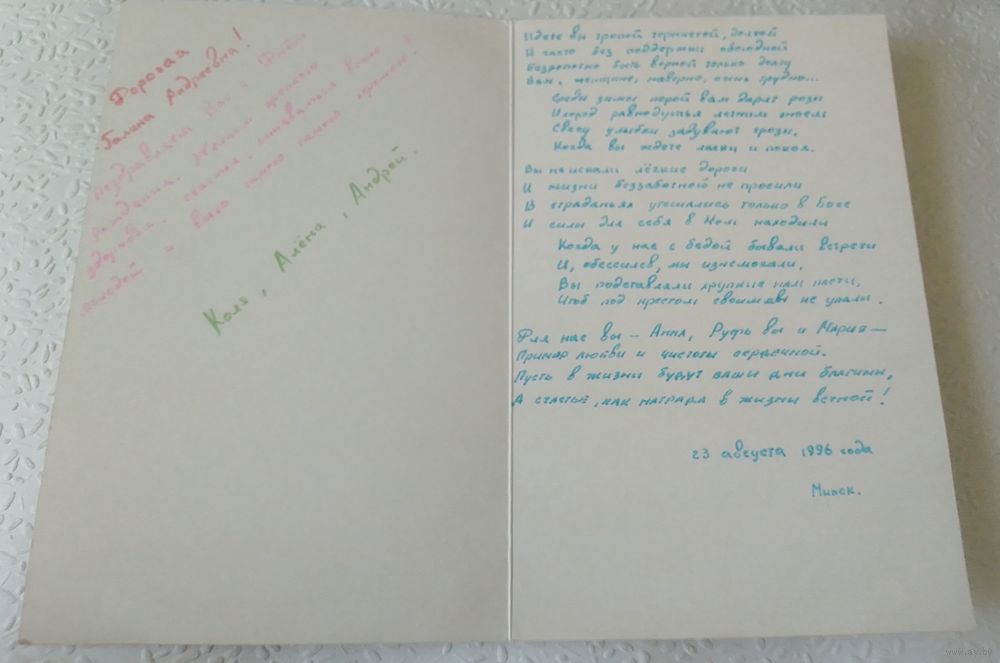 Дорогая
Галина Андреевна!
Поздравляем Вас с Днём
рождения. Желаем крепкого
здоровья, счастья, оставаться всегда
молодой и всего самого хорошего!
Коля, Алена, Андрей.
Идете вы тропой тернистой, долгой
И часто без поддержки обоюдной
Безропотно быть верной только долгу
Вам, женщине, наверно, очень трудно...
Среди зимы порой вам дарят розы
И город равнодушья
Свечу улыбки задувают грозы,
Когда вы ждете ласки и покоя.
Вы не искали лёгкие дороги
И жизни беззаботной не просили
В страданьях утешались только в Боге
И силы для себя в Нем находили
Когда у нас с бедой бывали встречи
И, обессилев, мы изнемогали,
Вы подставляли хрупкие нам плечи,
Чтоб под крестом своим мы не упали.
Для нас вы - Анна, Руфь вы и Мария -
Пример любви и чистоты сердечной.
Пусть в жизни будут ваши дни благими,
А счастье, как награда в жизни вечной!
23 августа 1996 года
Минск.
www.ay.by